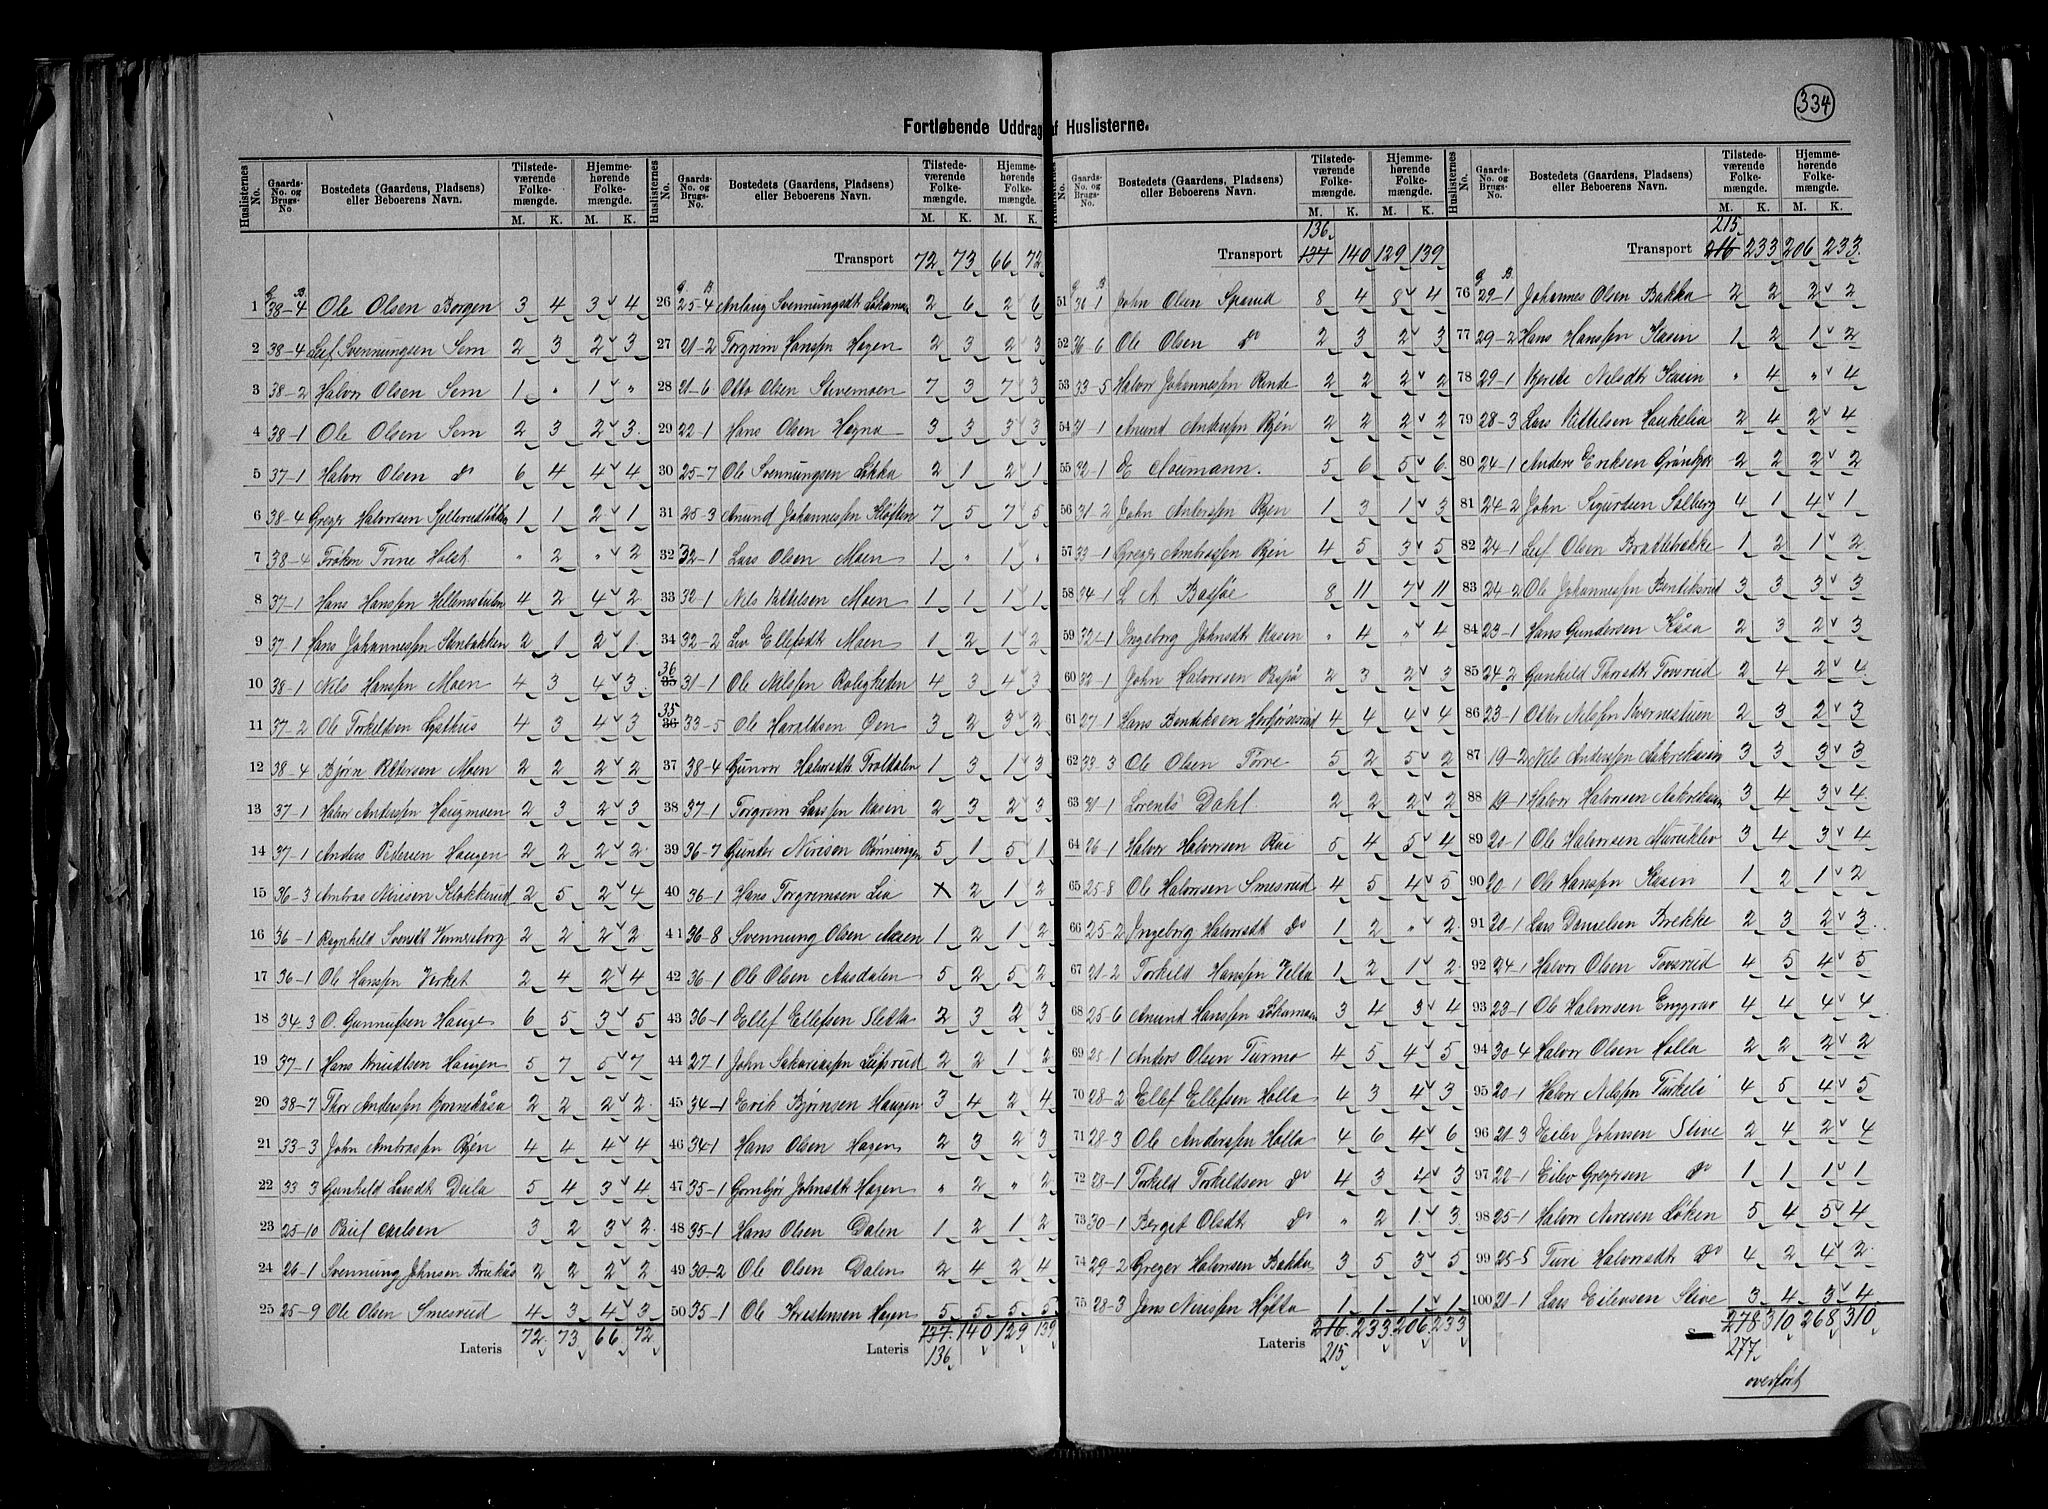 334
Fortløbende Uddrag af Huslisterne.
Huslisternes No. Gaards-No. og Brugs-No. Bostedets (Gaardens, Pladsens) eller Beboerens Navn. Tilstedeværende Folkemængde. M. K. Hjemmehørende Folkemængde. M. K.
G. B.
1 38-4 Ole Olsen Borgen 3 4 3 4
2 38-4 Leif Svennungsen Sem 2 3 2 3
3 38-2 Halvor Olsen Sem 1 " 1 "
4 38-1 Ole Olsen Sem 2 3 2 3
5 37-1 Halvor Olsen do 6 4 4 4
6 38-4 Greger Halvorsen 1 1 2 1
7 38-4 Frøken Trine Holst " 2 " 2
8 37-1 Hans Hanssen 4 2 4 2
9 37-1 Hans Johannessen Stenbakken 2 1 2 1
10 38-1 Nils Hanssen Moen 4 3 4 3
11 37-2 Ole Torkelssen Lysthus 4 3 4 3
12 38-4 Bjørn Pettersen Moen 2 2 2 2
13 37-1 Halvor Anderssen Haugmoen 2 3 2 3
14 37-1 Anders Petersen Haugen 2 2 2 2
15 36-3 Ambros Nirisen Klokkerud 2 5 2 4
16 36-1 Ragnhild Svensdt 2 2 2 2
17 36-1 Ole Hanssen Verket 2 4 2 4
18 34-3 O. Gunnufsen Hauge 6 5 3 5
19 37-1 Hans Knudtsen Haugen 5 7 5 7
20 38-7 Thor Anderssen Bonnekåsa 2 2 2 2
21 33-3 John Ambrossen Øjen 4 4 4 4
22 33 3 Gunhild Larsdt Deila 5 4 3 4
23 25-10 Paul Carlsen 3 2 3 2
24 26-1 Svennung Johnsen Brukås 2 2 2 2
25 25-9 Ole Olsen Smesrud 4 3 4 3
Lateris 72 73 66 72
Huslisternes No. Gaards-No. og Brugs-No. Bostedets (Gaardens, Pladsens) eller Beboerens Navn. Tilstedeværende Folkemængde. M. K. Hjemmehørende Folkemængde. M. K.
Transport 72 73 66 72
G. B.
26 25-4 Anlaug Svennungsdt Løkamoen 2 6 2 6
27 21-2 Torgrim Hanssen Hagen 2 3 2 3
28 21-6 Otto Olsen Stivemoen 7 3 7 3
29 22-1 Hans Olsen Hogna 3 3 3 3
30 25-7 Ole Svennungsen Løkka 2 1 2 1
31 25-3 Anund Johannessen Kløften 7 5 7 5
32 32-1 Lars Olsen Moen 1 " 1 "
33 32-1 Nils Kittilsen Moen 1 1 1 1
34 32-2 Liv Ellefsdt Moen 1 2 1 2
36 35 31-1 Ole Nilssen Roligheden 4 3 4 3
35 36 33-5 Ole Haraldsen Øen 3 2 3 2
37 38-4 Gunvor Halvorsdt Troldalen 1 3 1 3
38 37-1 Torgrim Larssen Kasin 2 3 2 3
39 36-7 Gunder Nirisen Rønningen 5 1 5 1
40 36-1 Hans Torgrimsen Lia X 2 1 2
41 36-8 Svennung Olsen Aasen 1 2 1 2
42 36-1 Ole Olsen Aasdalen 5 2 5 2
43 36-1 Ellef Ellefsen Sletta 2 3 2 3
44 27-1 John Sakariassen Leifsrud 2 2 1 2
45 34-1 Erik Bjørnsen Haugen 3 4 2 4
46 34-1 Hans Olsen Hagen 2 3 2 3
47 35-1 Gombjør Johnsdt Hagen " 2 " 2
48 35-1 Hans Olsen Dalen 1 2 1 2
49 30-2 Ole Olsen Dalen 2 4 2 4
50 35-1 Ole Kristensen Hagen 5 5 5 5
Lateris 137 140 129 139
136
Huslisternes No. Gaards-No. og Brugs-No. Bostedets (Gaardens, Pladsens) eller Beboerens Navn. Tilstedeværende Folkemængde. M. K. Hjemmehørende Folkemængde. M. K.
136
Transport 137 140 129 139
G. B.
51 36 1 John Olsen Sparud 8 4 8 4
52 36 6 Ole Olsen do 2 3 2 3
53 33-5 Halvor Johannessen Rinde 2 2 2 2
54 31-1 Anund Anderssen Øjen 2 2 2 2
55 32-1 E Noumann. 5 6 5 6
56 31-2 John Anderssen Øjen 1 3 1 3
57 33-1 Greger Ambrossen Øjen 4 5 3 5
58 34-1 L A Basøe 8 11 7 11
59 32-1 Ingeborg Johnsdt Kasen " 4 " 4
60 32-1 John Halvorsen 2 3 2 3
61 27-1 Hans Bendiksen 4 4 4 4
62 33 3 Ole Olsen Torve 5 2 5 2
63 31-1 Lorents Dahl 2 2 2 2
64 26-1 Halvor Halvorsen Rui 5 4 5 4
65 25-8 Ole Halvorsen Smesrud 4 5 4 5
66 25-2 Ingeborg Halvorsdt do 1 2 " 2
67 21-2 Torkild Hanssen Velta 1 2 1 2
68 25-6 Anund Hanssen Løkamoen 3 4 3 4
69 28-1 Anders Olsen Turmo 4 5 4 5
70 28-2 Ellef Ellefsen Holla 4 3 4 3
71 28-3 Ole Anderssen Holla 4 6 4 6
72 28-1 Torkild Torkildsen do 4 3 4 3
73 30-1 Berget Olsdt do " 2 1 3
74 29-2 Greger Halvorsen Bakka 3 5 3 5
75 28-3 Jens Nirissen Hytta 1 1 1 1
Lateris 216 233 206 233
215
Huslisternes No. Gaards-No. og Brugs-No. Bostedets (Gaardens, Pladsens) eller Beboerens Navn. Tilstedeværende Folkemængde. M. K. Hjemmehørende Folkemængde. M. K.
215
Transport 216 233 206 233
G. B.
76 29-1 Johannes Olsen Bakka 2 2 2 2
77 29-2 Hans Hanssen Kasin 1 2 1 2
78 29-1 Nilsdt Kasin " 4 " 4
79 28-3 Lars Kittelsen Haukelia 2 4 2 4
80 24-1 Anders Eriksen Grønkjær 2 2 2 2
81 24-2 John Sigurdsen Solberg 4 1 4 1
82 24-1 Leif Olsen Brattebække 1 2 1 2
83 24-2 Ole Johannessen Bendiksrud 3 3 3 3
84 23-1 Hans Gundersen Kåsa 2 3 2 3
85 24-2 Gunhild Thorsdt Tovsrud 2 4 2 4
86 23-1 Otter Nilssen Kvernestuen 2 3 2 3
87 19-2 Nils Anderssen Aakrekasin 3 3 3 3
88 19-1 Halvor Halvorsen Aakrekasin 3 4 3 4
89 20-1 Ole Halvorsen Mureklev 3 4 3 4
90 20-1 Ole Hanssen Kasin 1 2 1 2
91 20-1 Lars Danielsen Brekke 2 3 2 3
92 24-1 Halvor Olsen Tovsrud 4 5 4 5
93 23-1 Ole Halvorsen Enggrav 4 4 4 4
94 30-4 Halvor Olsen Holla 2 2 2 2
95 20-1 Halvor Nilssen Turkeli 4 5 4 5
96 21-3 Eilev Johnsen Stive 2 4 2 4
97 22-1 Eilev Gregersen do 1 1 1 1
98 25-1 Halvor Nirisen Løken 5 4 5 4
99 25-5 Turi Halvorsdt do 4 2 4 2
100 21-1 Lars Eilevsen Stive 3 4 3 4
278 310 268 310
277
overført